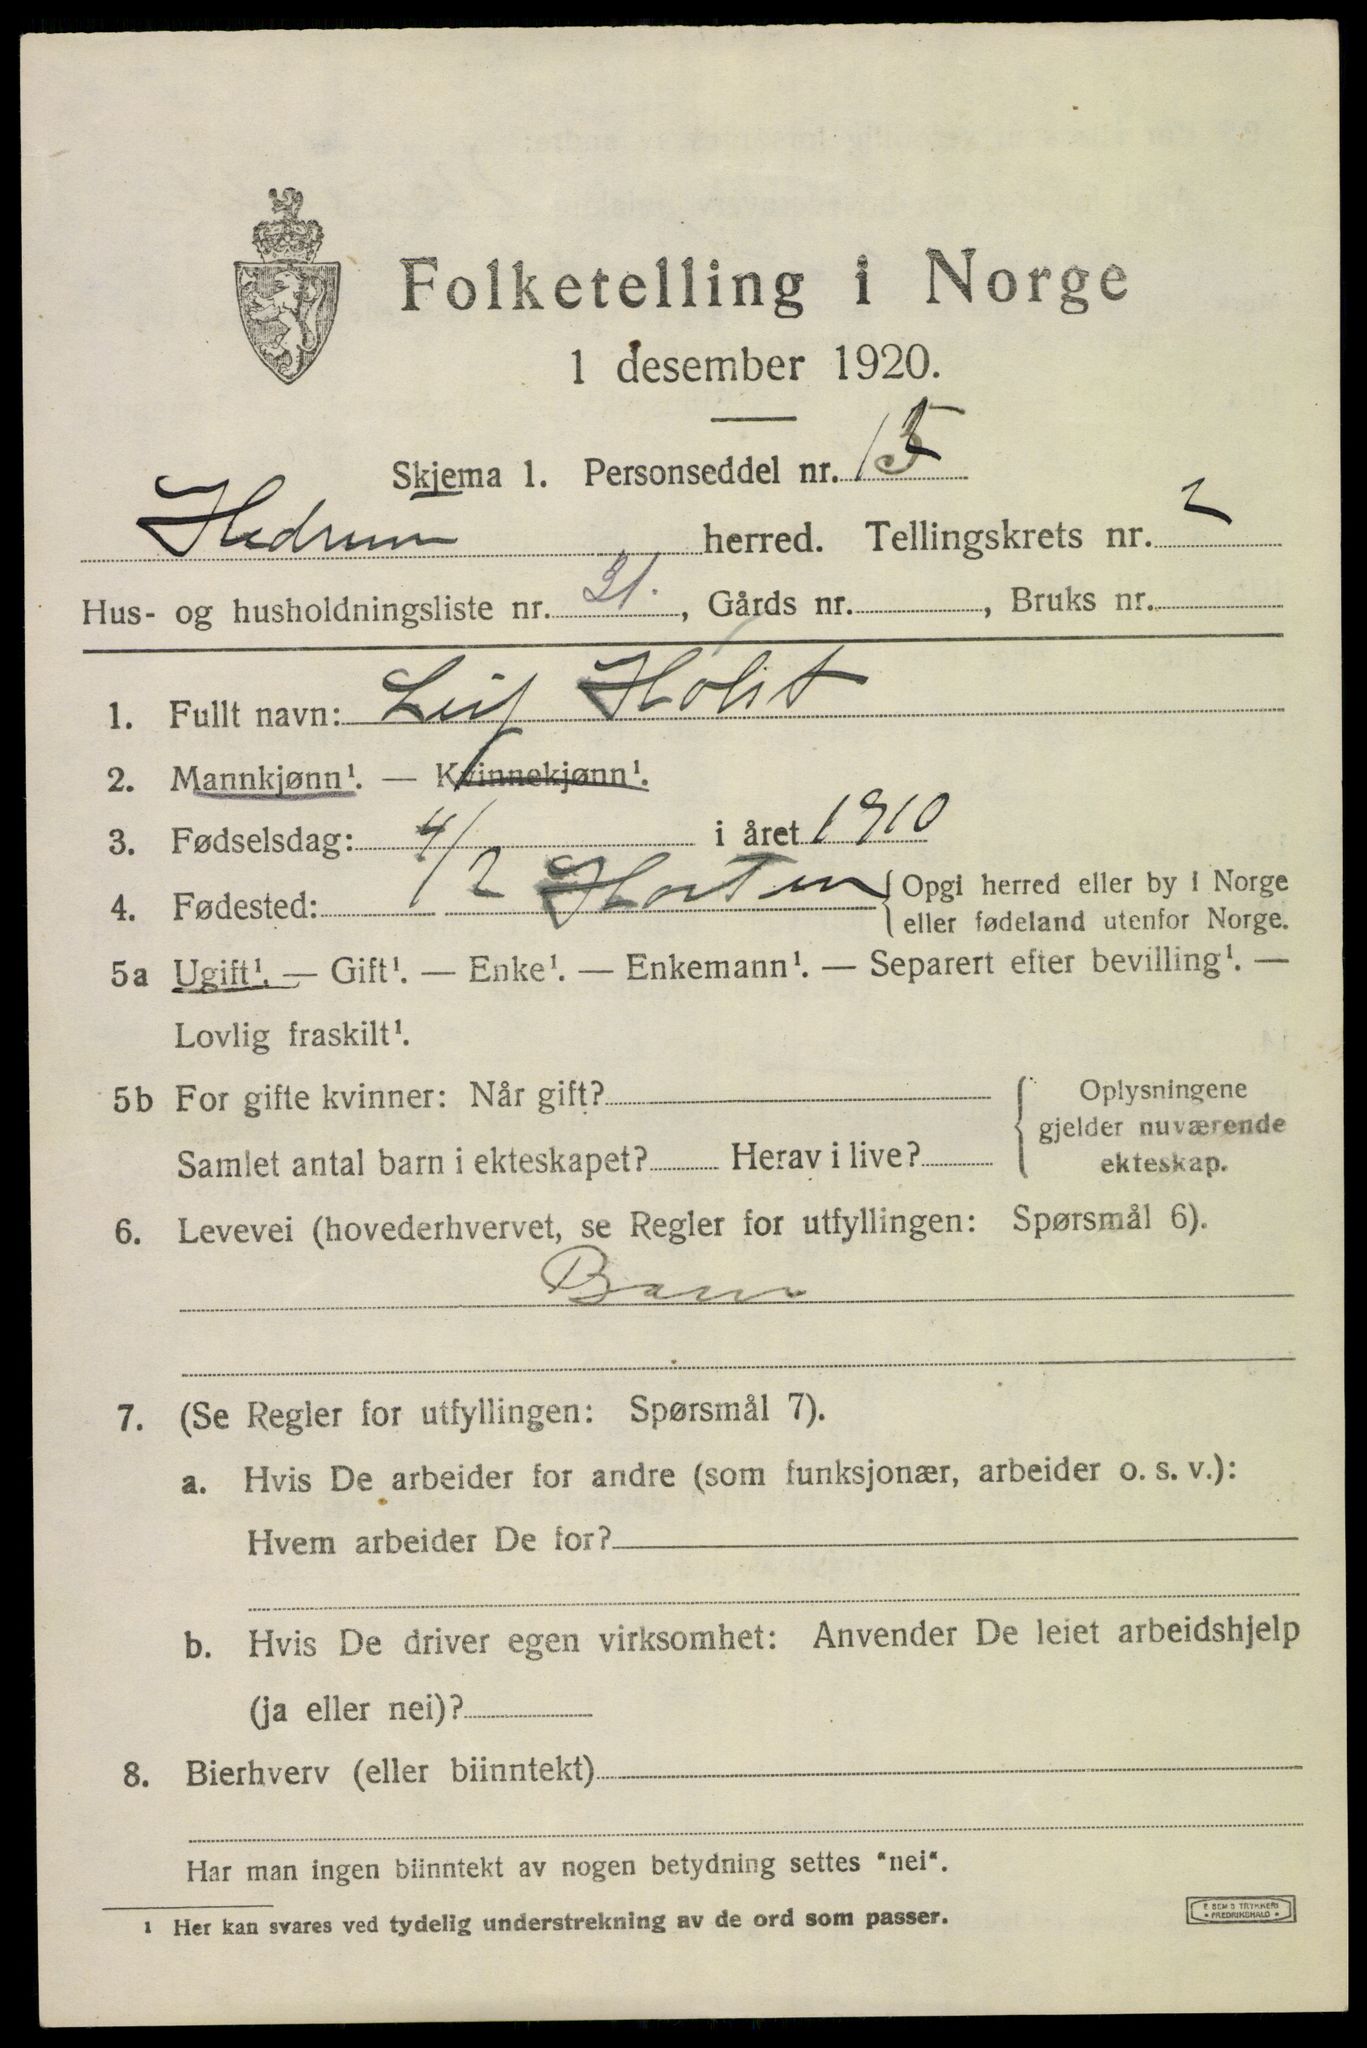 Folketelling i Norge
1 desember 1920.
Skjema 1. Personseddel nr. 15
Hedrum herred. Tellingskrets nr. 2
Hus- og husholdningsliste nr. 21. , Gårds nr. , Bruks nr.
1. Fullt navn: Leif Holst
2. Mannkjønn¹. — Kvinnekjønn¹.
3. Fødselsdag: 4/2 i året 1910
4. Fødested: Horten { Opgi herred eller by i Norge
eller fødeland utenfor Norge.
5a Ugift¹. — Gift¹. — Enke¹. — Enkemann¹. — Separert efter bevilling¹. —
Lovlig fraskilt¹.
5b For gifte kvinner: Når gift?
Samlet antal barn i ekteskapet? Herav i live?
{ Oplysningene
gjelder nuværende
ekteskap.
6. Levevei (hovederhvervet, se Regler for utfyllingen: Spørsmål 6).
Barn
7. (Se Regler for utfyllingen: Spørsmål 7).
a. Hvis De arbeider for andre (som funksjonær, arbeider o. s. v.):
Hvem arbeider De for?
b. Hvis De driver egen virksomhet: Anvender De leiet arbeidshjelp
(ja eller nei)?
8. Bierhverv (eller biinntekt)
Har man ingen biinntekt av nogen betydning settes "nei".
¹ Her kan svares ved tydelig understrekning av de ord som passer.
E SEM'S TRYKKERI
• FREDRIKSHALD •